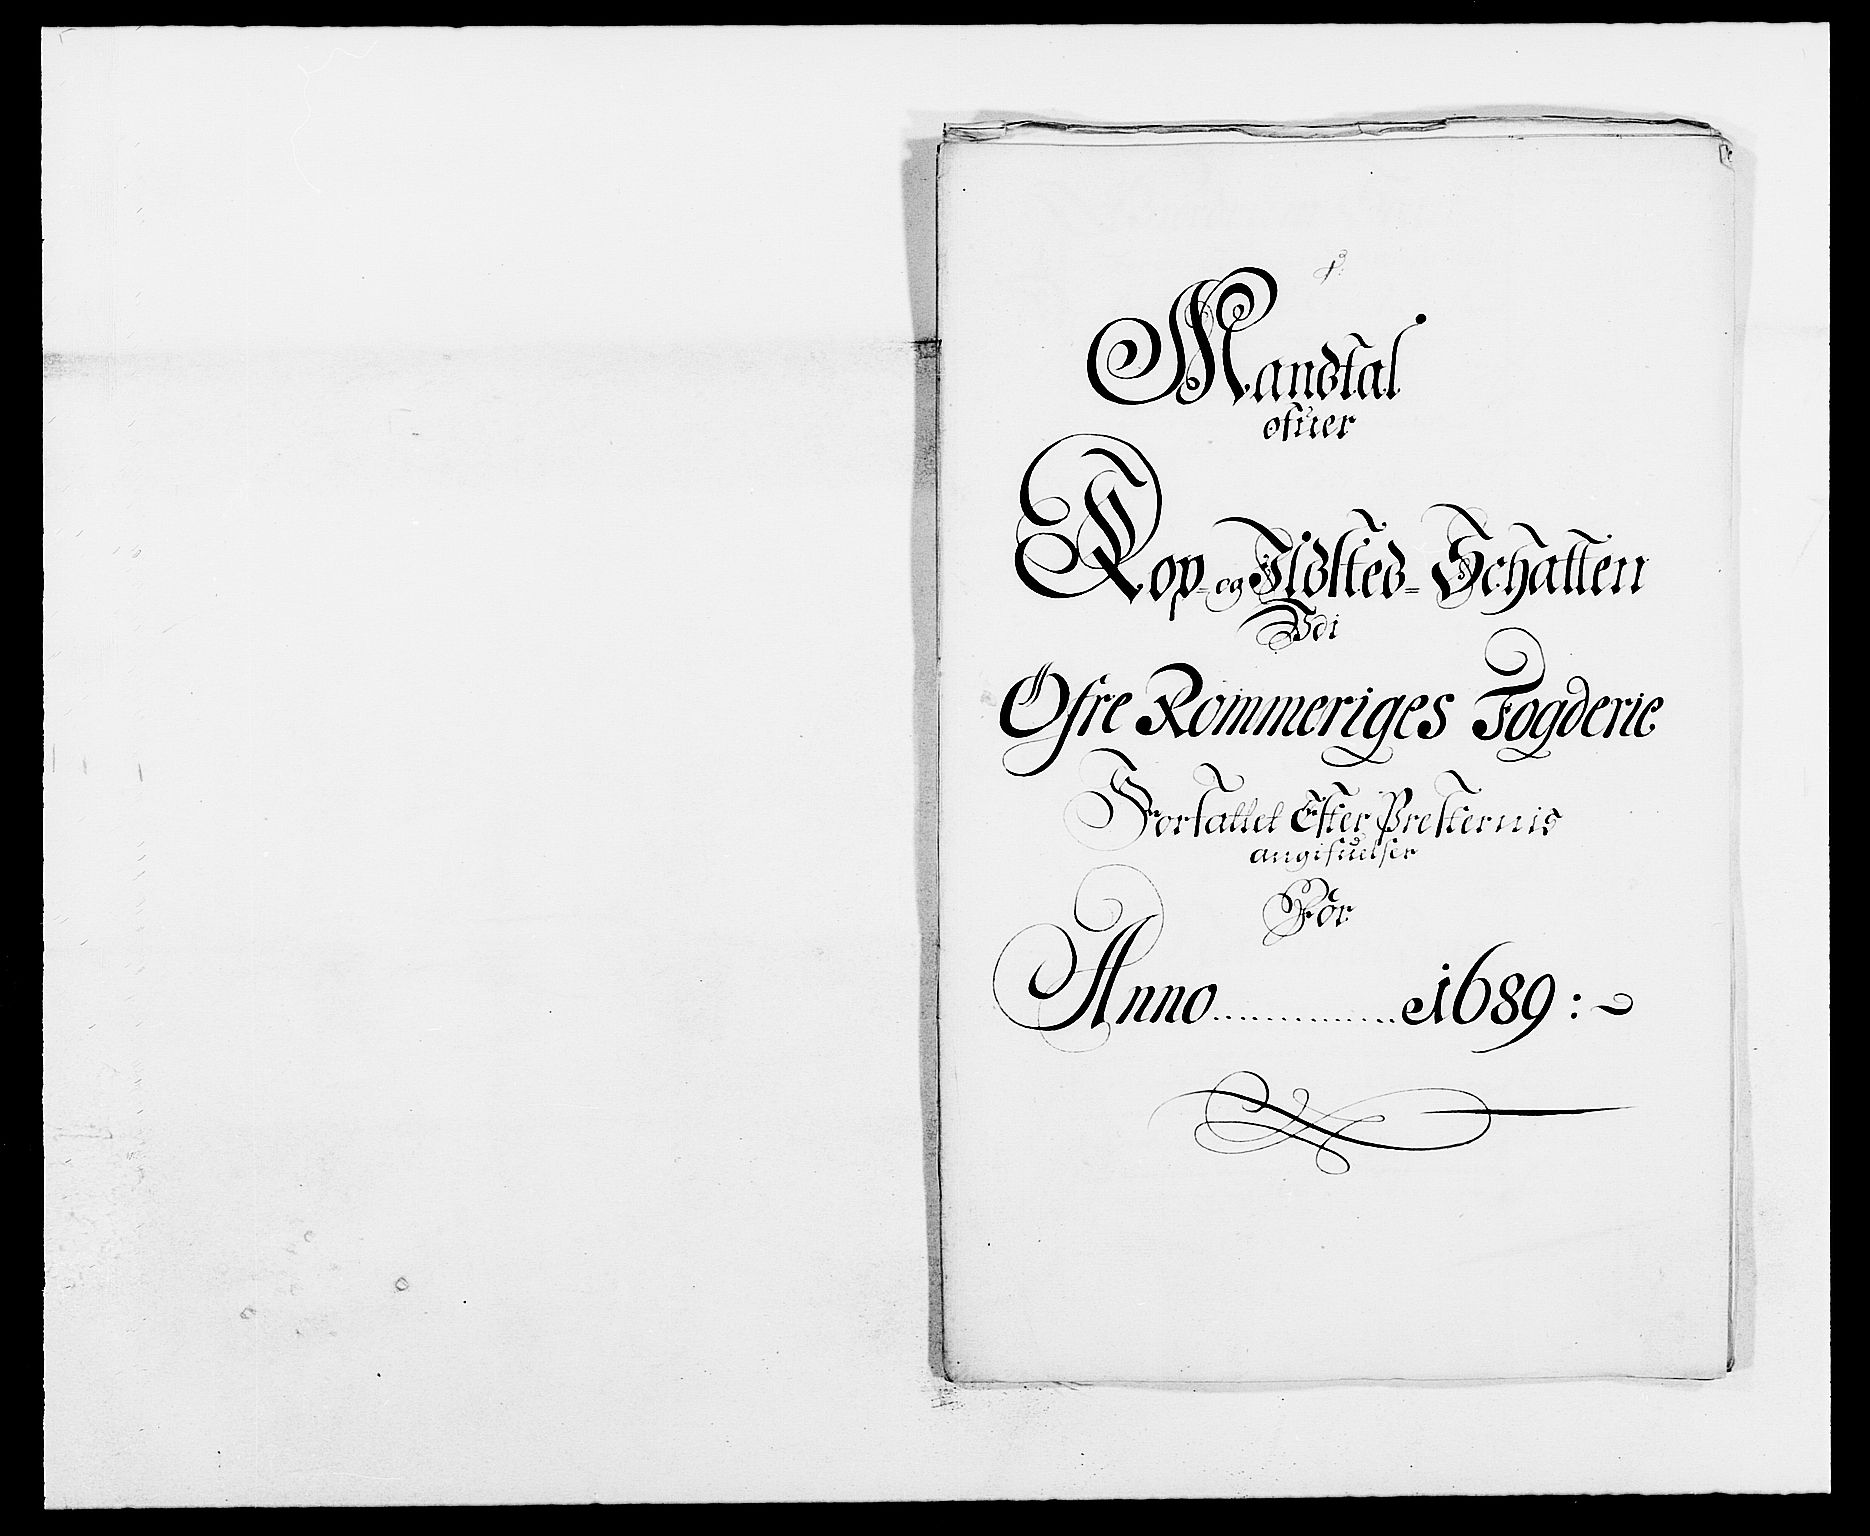 Mandtal
ofuer
Kop- og Ildsted-Schatten
Udi
Öfre Rommeriges Fogderie
Forfattet Efter Presternis
angifuelser
För
Anno.............1689:~